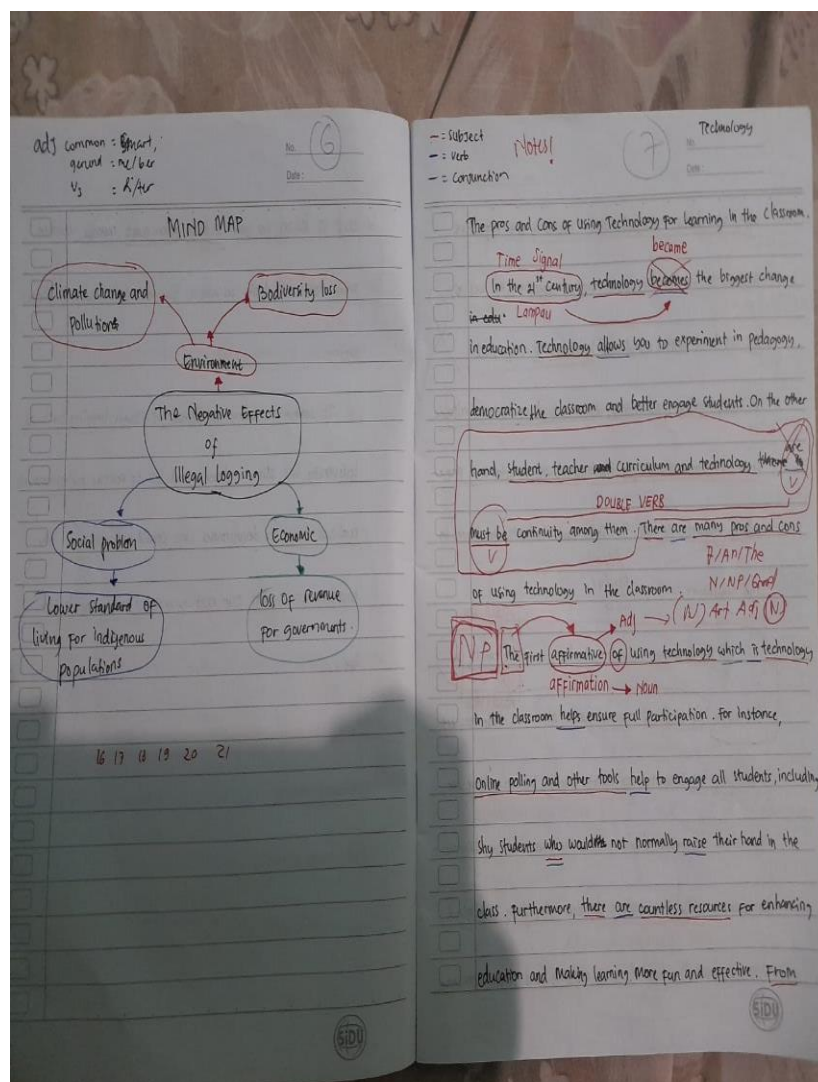 adj common = smart,
gerund = me/ber
V3 : di/ter
No.
6
Date:
MIND MAP
Climate change and
Pollution
Bodiversity loss
Environment
The Negative Effects
of
Illegal logging
Social problem
Economic
Lower standard of
living for indigenous
populations
loss of revenue
for governments.
16 17 18 19 20 21
SIDU
- = Subject
- = Verb
- = Conjunction
Notes!
7
Technology
No
Date:
The pros and cons of using Technology for learning in the classroom.
Time Signal
became
In the 21st century, technology becomes the biggest change
in edu. Lampau
in education. Technology allows you to experiment in pedagogy,
democratize the classroom and better engage students. On the other
are
hand, student, teacher curriculum and technology
V
DOUBLE VERB
must be continuity among them. There are many pros and cons
V
A/An/The
of using technology in the classroom.
N/NP/Gred
Adj → (N) Art Adj N
NP The first affirmative of using technology which is technology
affirmation → Noun
in the classroom helps ensure full participation. For instance,
Online polling and other tools help to engage all students, including
shy students who would not normally raise their hand in the
class. Furthermore, there are countless resources for enhancing
education and making learning more fun and effective. From
SIDU